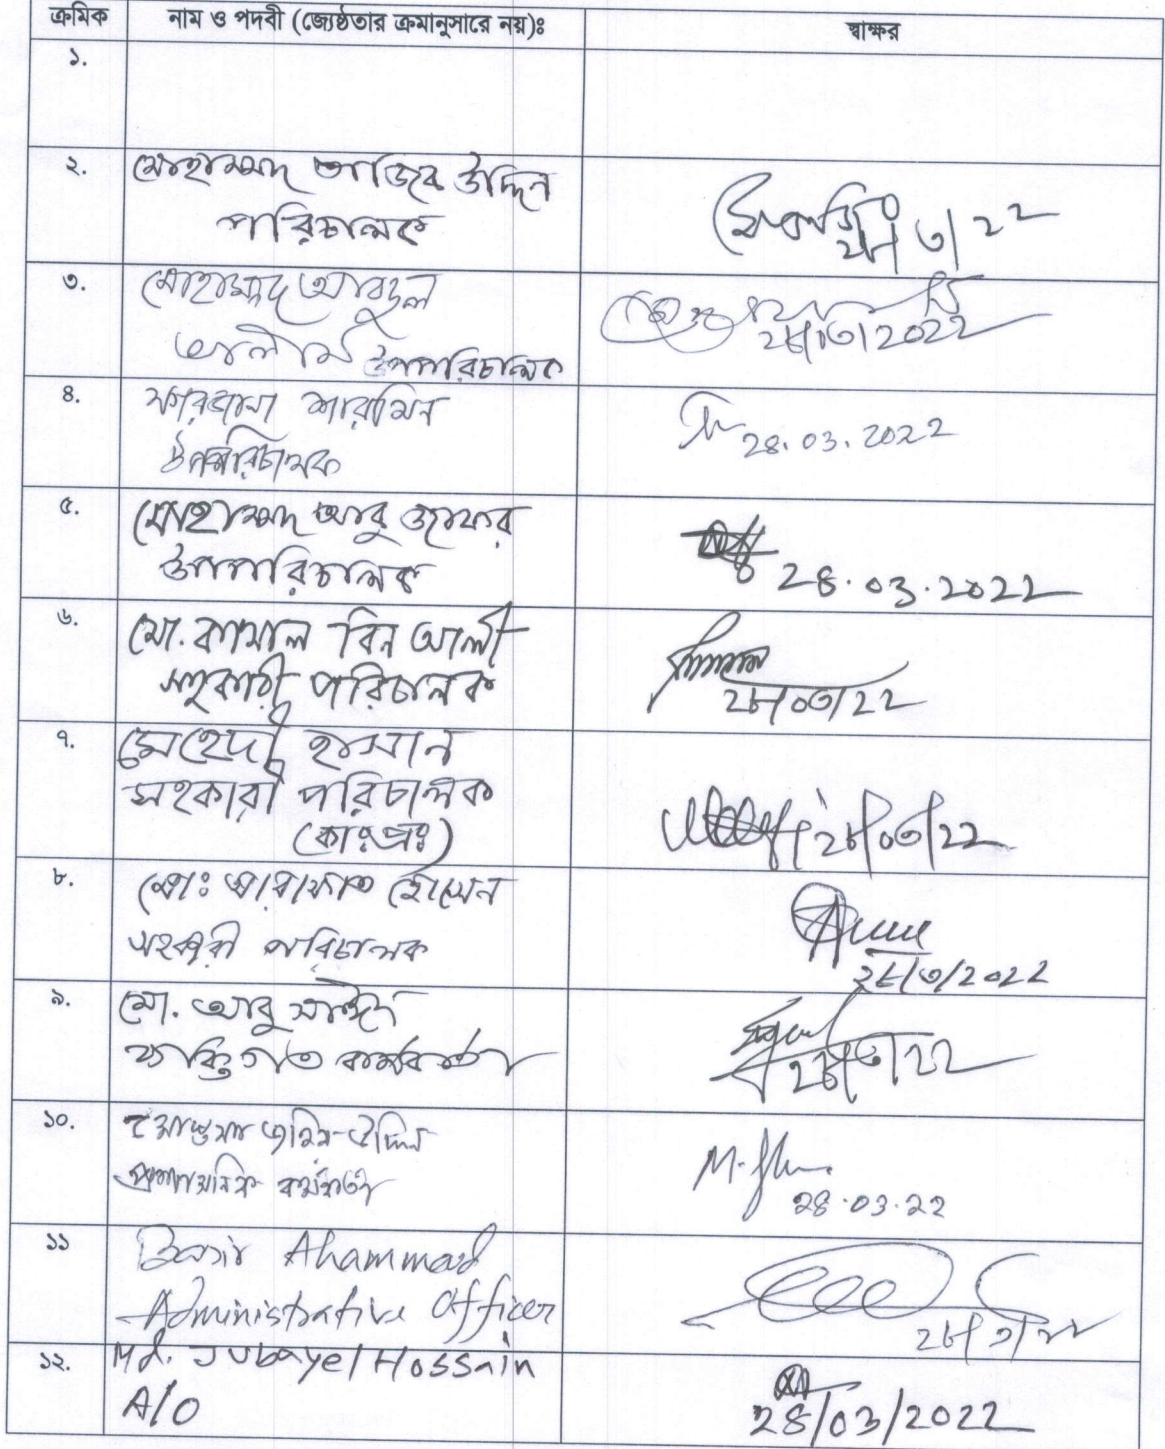 ক্রমিক নাম ও পদবী (জ্যেষ্ঠতার ক্রমানুসারে নয়)ঃ স্বাক্ষর
১.
২. মোহাম্মদ আজিব উদ্দিন
পরিচালক
২৮/৩/২২
৩. মোহাম্মদ আবদুল
আলীম উপপরিচালক
২৮/০৩/২০২২
৪. ফারহানা শারমিন
উপপরিচালক
28.03.2022
৫. মোহাম্মদ আবু জাফর
উপপরিচালক
28.03.2022
৬. মো. কামাল বিন আলী
সহকারী পরিচালক
২৮/০৩/২২
৭. মেহেদী হাসান
সহকারী পরিচালক
(কাঃপ্রঃ)
২৮/০৩/২২
৮. মোঃ আরাফাত হোসেন
সহকারী পরিচালক
২৮/৩/২০২২
৯. মো. আবু সাঈদ
ব্যক্তিগত কর্মকর্তা
২৮/৩/২২
১০. উদ্দিন
প্রশাসনিক কর্মকর্তা
28.03.22
১১ Ahammad
Administrative Officer
২৮/৩/২২
১২. Md. Jubayel Hossain
A/O
28/03/2022